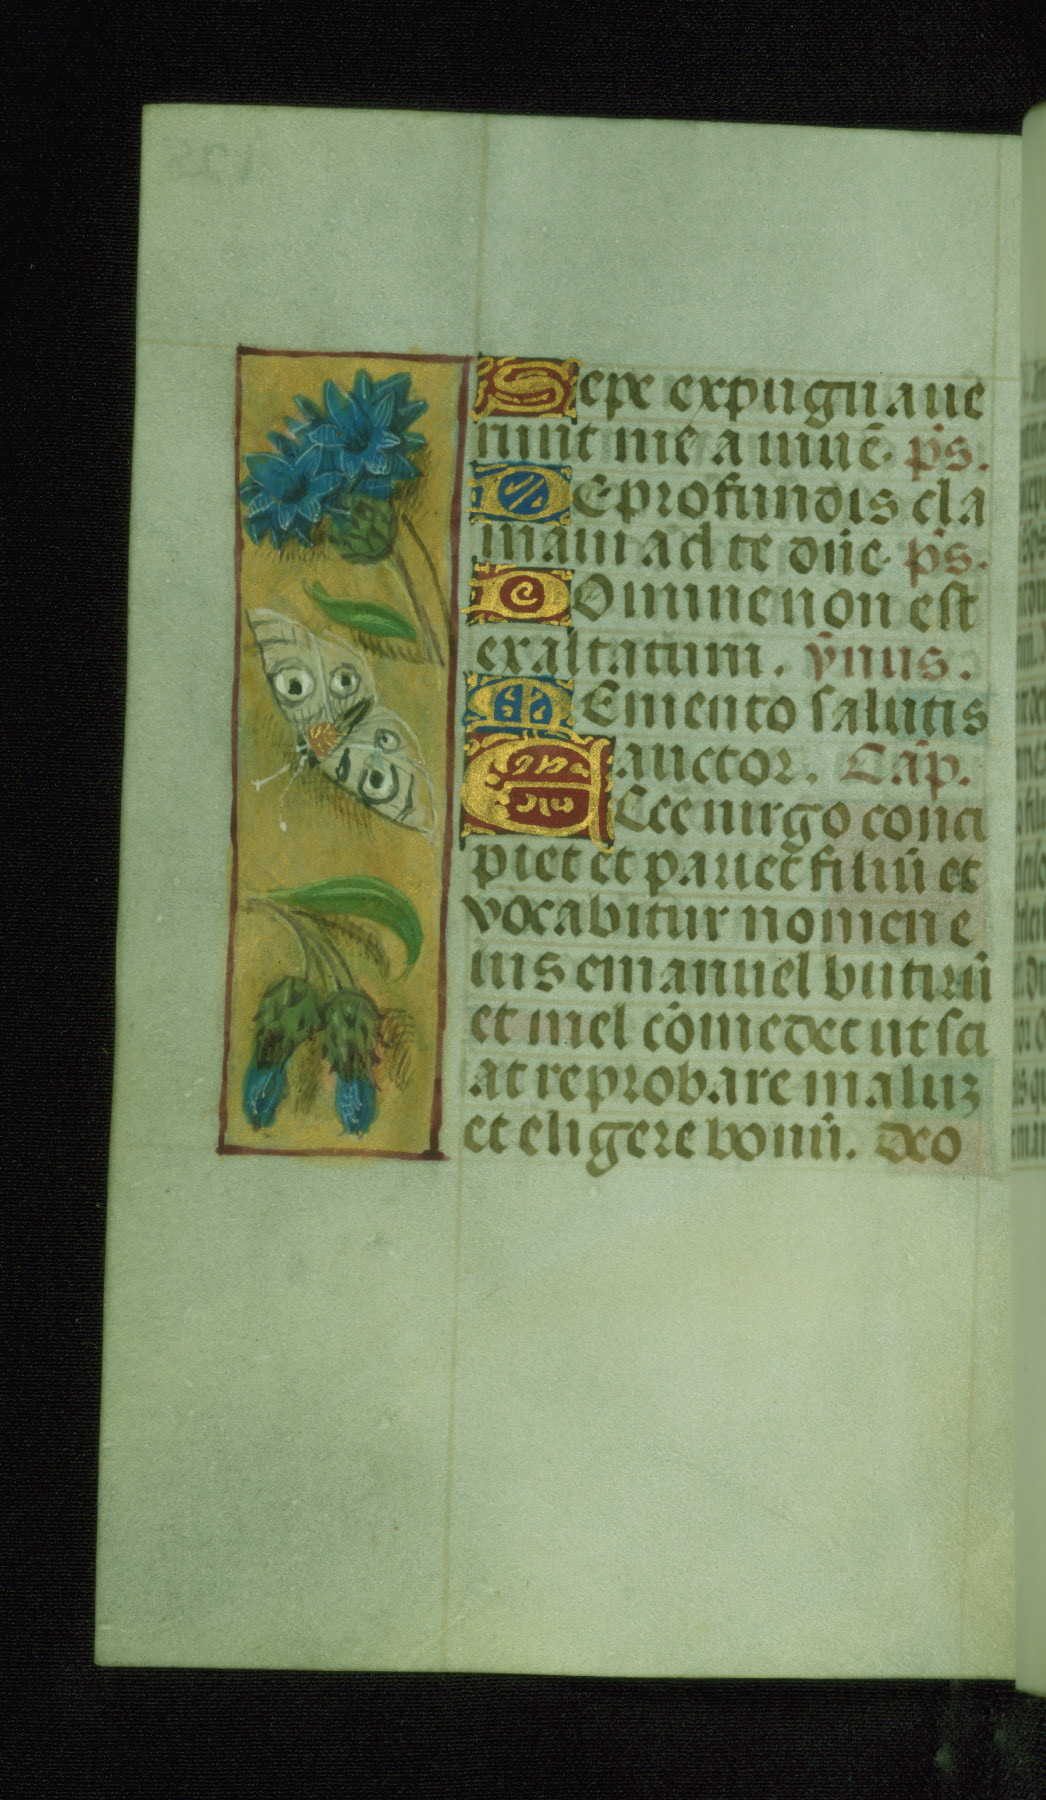 Sepe expugnaue
runt me a iuuē. p̄s.
De profundis cla
maui ad te dn̄e. p̄s.
Domine non est
exaltatum. ymus.
Memento salutis
auctor. Cap̄.
Ecce uirgo conci
piet et pariet filiū et
vocabitur nomen e
ius emanuel butirū
et mel cōmedet ut sci
at reprobare maluz
et eligere bonū. deo